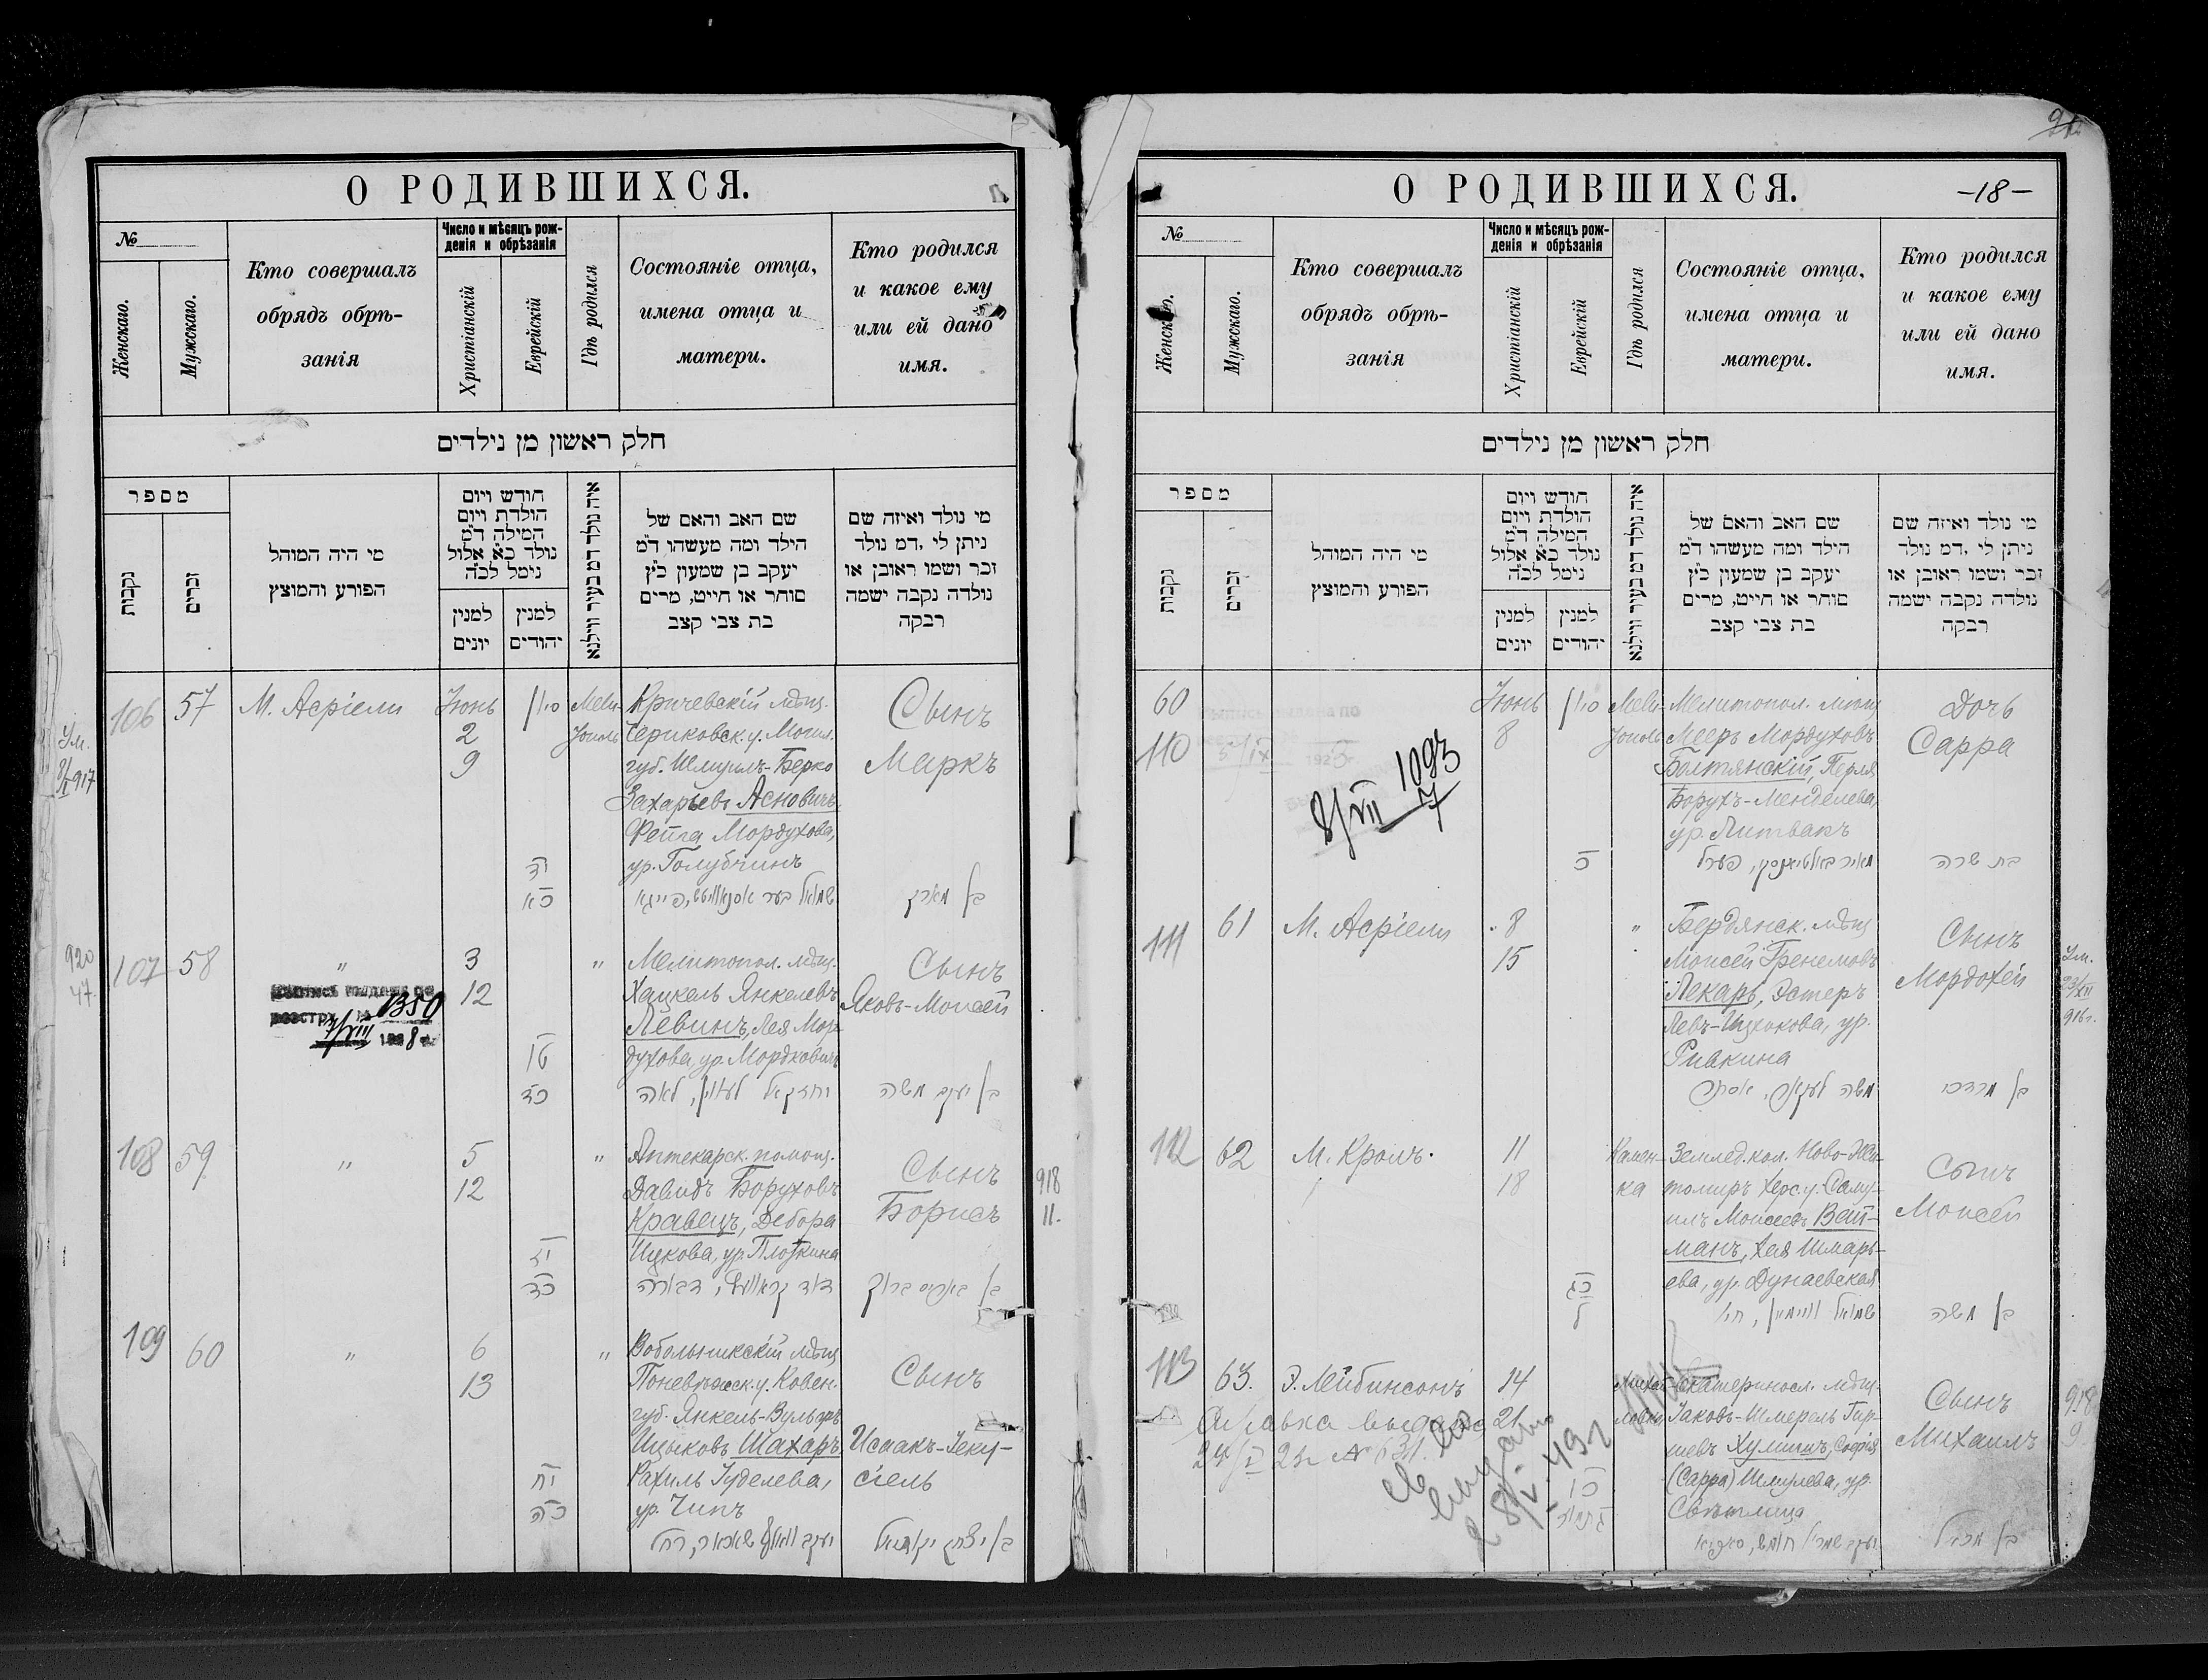 О РОДИВШИХСЯ.
№
Женскаго.
Мужскаго.
Кто совершалъ
обрядъ обрѣ-
занія
Число и мѣсяцъ рож-
денія и обрѣзанія
Христіанскій
Еврейскій
Гдѣ родился
Состояніе отца,
имена отца и
матери.
Кто родился
и какое ему
или ей дано
имя.
חלק ראשון מן נילדים
מספר
נקבות
זכרים
מי היה המוהל
הפורע והמוצץ
חודש ויום
הולדת ויום
המילה ד"מ
נולד כ"א אלול
נימל לכ"ה
למנין
יונים
למנין
יהודים
איה נולד דמ בעיר ווילנא
שם האב והאם של
הילד ומה מעשהו ד"מ
יעקב בן שמעון כ"ץ
סוחר או חייט, מרים
בת צבי קצב
מי נולד ואיזה שם
ניתן לי, דמ נולד
זכר ושמו ראובן או
נולדה נקבה ישמה
רבקה
106
57
М. Асріели
Іюнь
2
9
סיון
יד
כא
Мели-
тополь
Кричевскій мѣщ.
Чериковск. у. Могил.
губ. Шмуилъ-Берко
Захарьевъ Асновичъ,
Фейга Мордухова,
ур. Голубчинъ
Сынъ
Маркъ
בן מארק
Ум.
917
107
58
"
3
12
טו
כד
"
Мелитопол. мѣщ.
Хацкель Янкелевъ
Левинъ, Лея Мор-
духова, ур. Мордковичъ
יחזקאל לעווין, לאה
Сынъ
Яковъ-Моисей
בן יעקב משה
1350
920
47.
108
59
"
5
12
יז
כד
"
Аптекарск. помощ.
Давидъ Боруховъ
Кравецъ, Дебора
Ицкова, ур. Плоткина
דוד קראוועץ, דבורה
Сынъ
Борисъ
918
11.
109
60
"
6
13
יח
כה
"
Вобольникскій мѣщ.
Поневѣжск. у. Ковен.
губ. Янкель-Вульфъ
Ицыковъ Шахаръ,
Рахиль Іуделева,
ур. Чипъ
Сынъ
Исаакъ-Іеку-
сіель
בן יצחק יקותיאל
О РОДИВШИХСЯ.
-18-
№
Женскаго.
Мужскаго.
Кто совершалъ
обрядъ обрѣ-
занія
Число и мѣсяцъ рож-
денія и обрѣзанія
Христіанскій
Еврейскій
Гдѣ родился
Состояніе отца,
имена отца и
матери.
Кто родился
и какое ему
или ей дано
имя.
חלק ראשון מן נילדים
מספר
נקבות
זכרים
מי היה המוהל
הפורע והמוצץ
חודש ויום
הולדת ויום
המילה ד"מ
נולד כ"א אלול
נימל לכ"ה
למנין
יונים
למנין
יהודים
איה נולד דמ בעיר ווילנא
שם האב והאם של
הילד ומה מעשהו ד"מ
יעקב בן שמעון כ"ץ
סוחר או חייט, מרים
בת צבי קצב
מי נולד ואיזה שם
ניתן לי, דמ נולד
זכר ושמו ראובן או
נולדה נקבה ישמה
רבקה
60
110
1093
Іюнь
8
סיון
כ
Мели-
тополь
Мелитопол. мѣщ.
Мееръ Мордуховъ
Болтянскій, Перля
Борухъ-Менделева,
ур. Литвакъ
Дочь
Сарра
בת שרה
111
61
М. Асріели
8
15
"
Бердянск. мѣщ.
Моисей Ефремовъ
Лекарь, Эстеръ
Левъ-Ицхокова, ур.
Ривкина
Сынъ
Мордохей
בן מרדכי
Ум.
23/XII
916г.
112
62
М. Кролъ.
11
18
כג
ל
Камен-
ка
Землед. кол. Ново-Жи-
томиръ Херс. у. Саму-
илъ Моисеевъ Вай-
манъ, Хая Шмарь-
ева, ур. Дунаевская
שמואל ווײמאן, חיה
Сынъ
Моисей
בן משה
113
63.
Э. Лейбинсонъ
14
21
כו
Михай-
ловка
Екатеринос. мѣщ.
Іаковъ-Шмерель Гир-
шевъ Хумишъ, Софія
(Сарра) Шмулева, ур.
Свѣтлица
Сынъ
Михаилъ
918
9
Справка выдана